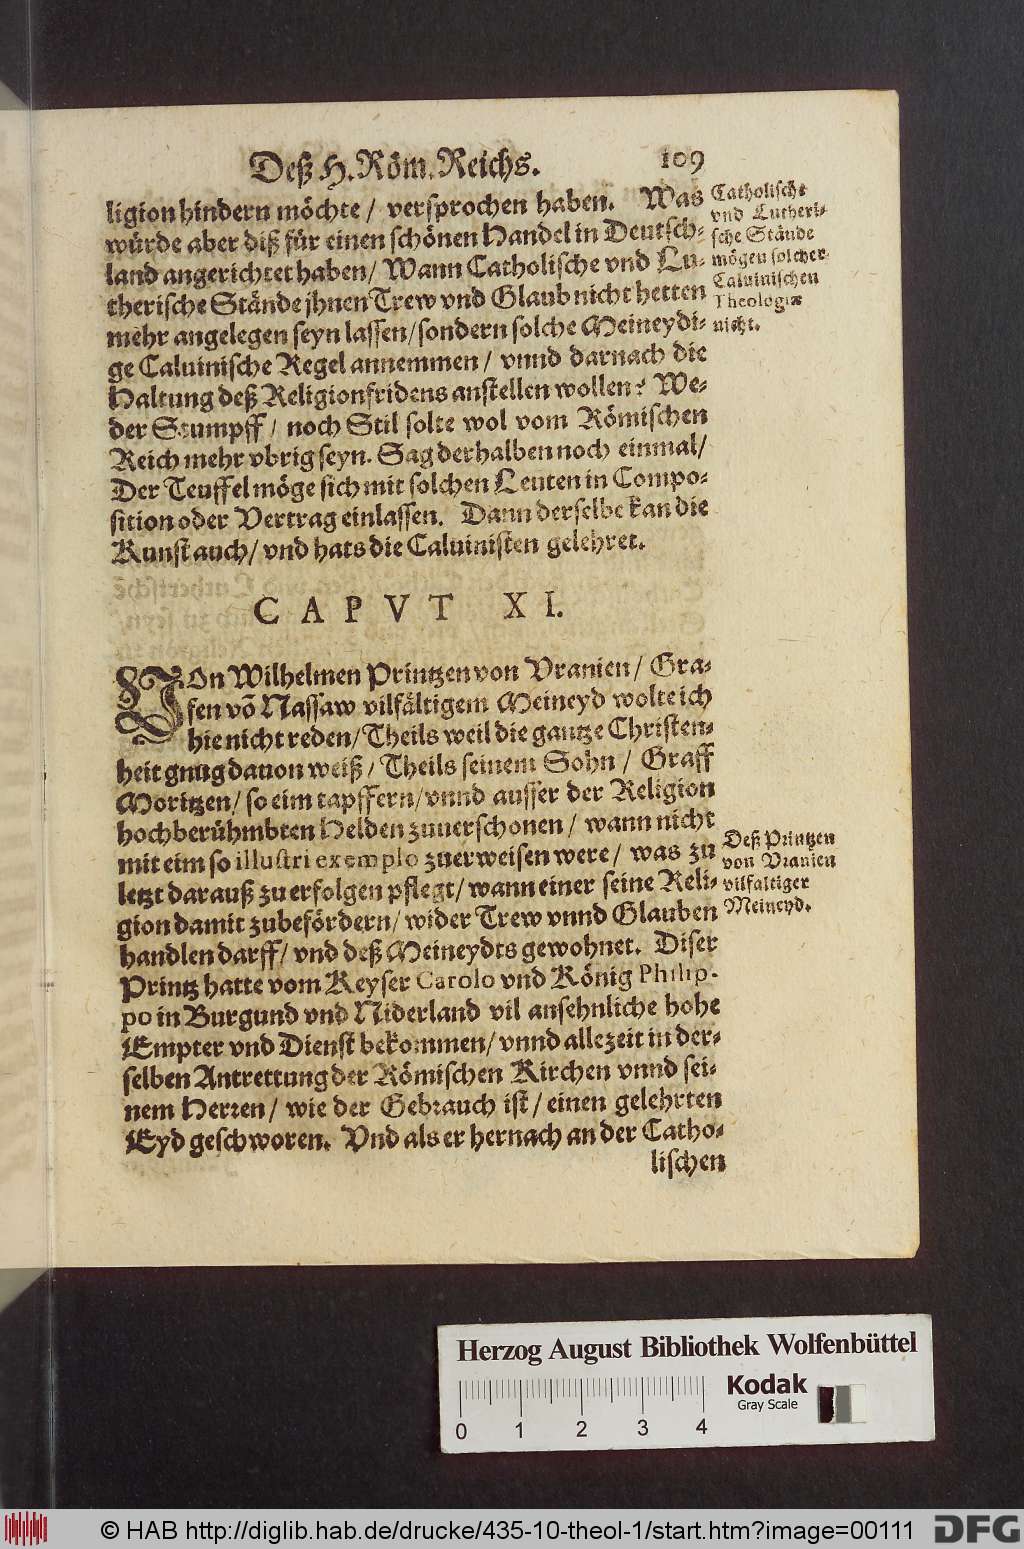 Deß H. Röm. Reichs. 109
ligion hindern möchte / versprochen haben. Was
würde aber diß für einen schönen Handel in Deutsch-
land angerichtet haben / Wann Catholische vnd Lu-
therische Stände jhnen Trew vnd Glaub nicht hetten
mehr angelegen seyn lassen / sondern solche Meineydi-
ge Caluinische Regel annemmen / vnnd darnach die
Haltung deß Religionfridens anstellen wollen? We-
der Stumpff / noch Stil solte wol vom Römischen
Reich mehr vbrig seyn. Sag derhalben noch einmal /
Der Teuffel möge sich mit solchen Leuten in Compo-
sition oder Vertrag einlassen. Dann derselbe kan die
Kunst auch / vnd hats die Caluinisten gelehret.
Catholische
vnd Lutheri-
sche Stände
mögen solcher
Caluinischen
Theologiæ
nicht.
CAPVT XI.
VOn Wilhelmen Printzen von Vranien / Gra-
fen võ Nassaw vilfältigem Meineyd wolte ich
hie nicht reden / Theils weil die gantze Christen-
heit gnug dauon weiß / Theils seinem Sohn / Graff
Moritzen / so eim tapffern / vnnd ausser der Religion
hochberühmbten Helden zuuerschonen / wann nicht
mit eim so illustri exemplo zuerweisen were / was zu
letzt darauß zu erfolgen pflegt / wann einer seine Reli-
gion damit zubefördern / wider Trew vnnd Glauben
handlen darff / vnd deß Meineydts gewohnet. Diser
Printz hatte vom Keyser Carolo vnd König Philip-
po in Burgund vnd Niderland vil ansehnliche hohe
Empter vnd Dienst bekommen / vnnd allezeit in der-
selben Antrettung der Römischen Kirchen vnnd sei-
nem Herren / wie der Gebrauch ist / einen gelehrten
Eyd geschworen. Vnd als er hernach an der Catho-
lischen
Deß Printzen
von Vranien
vilfaltiger
Meineyd.
Herzog August Bibliothek Wolfenbüttel
Kodak
Gray Scale
0 1 2 3 4
© HAB http://diglib.hab.de/drucke/435-10-theol-1/start.htm?image=00111
DFG